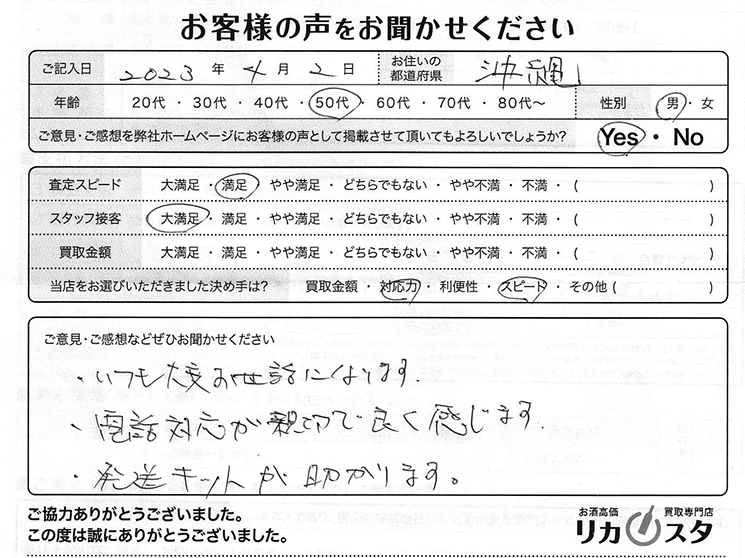 お客様の声をお聞かせください
ご記入日 2023 年 4 月 2 日 お住いの都道府県 沖縄
年齢 20代・30代・40代・50代・60代・70代・80代~ 性別 男・女
ご意見・ご感想を弊社ホームページにお客様の声として掲載させて頂いてもよろしいでしょうか? Yes・No
査定スピード 大満足・満足・やや満足・どちらでもない・やや不満・不満・( )
スタッフ接客 大満足・満足・やや満足・どちらでもない・やや不満・不満・( )
買取金額 大満足・満足・やや満足・どちらでもない・やや不満・不満・( )
当店をお選びいただきました決め手は? 買取金額・対応力・利便性・スピード・その他( )
ご意見・ご感想などぜひお聞かせください
・いつも大変お世話になります.
・電話対応が親切で良く感じます.
・発送キットが助かります。
ご協力ありがとうございました。
この度は誠にありがとうございました。
お酒高価 買取専門店
リカスタ